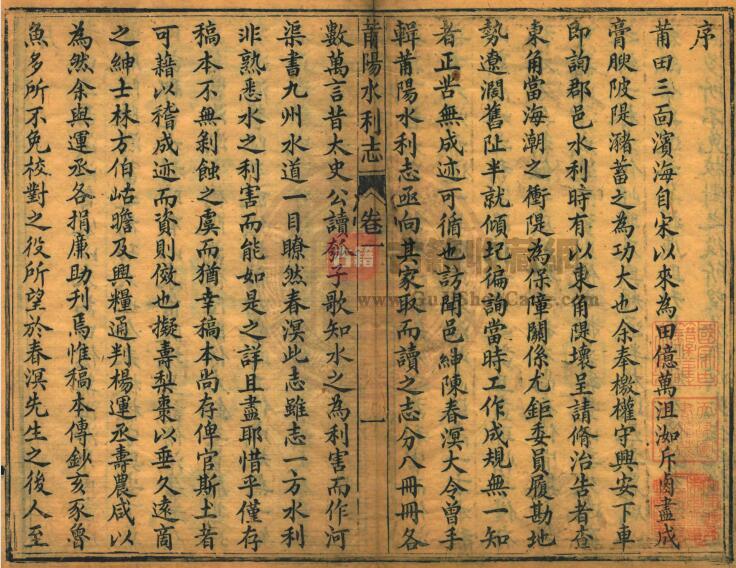 序
莆田三面濱海自宋以來為田億萬沮洳斥鹵盡成
膏腴陂隄瀦蓄之為功大也余奉檄權守興安下車
即詢郡邑水利時有以東角隄壞呈請脩治告者查
東角當海潮之衝隄為保障關係尤鉅委員履勘地
勢遼濶舊阯半就傾圮徧詢當時工作成規無一知
者正苦無成迹可循也訪聞邑紳陳春溟大令曾手
輯莆陽水利志亟向其家取而讀之志分八冊冊各
莆陽水利志 卷一 一
數萬言昔太史公讀瓠子歌知水之為利害而作河
渠書九州水道一目瞭然春溟此志雖志一方水利
非熟悉水之利害而能如是之詳且盡耶惜乎僅存
稿本不無剝蝕之虞而猶幸稿本尚存俾官斯土者
可藉以稽成迹而資則傚也擬壽梨棗以垂久遠商
之紳士林方伯岵瞻及興糧通判楊運丞壽農咸以
為然余與運丞各捐廉助刊焉惟稿本傳鈔亥豕魯
魚多所不免校對之役所望於春溟先生之後人至
古籍
www.GuJiShouCang.com